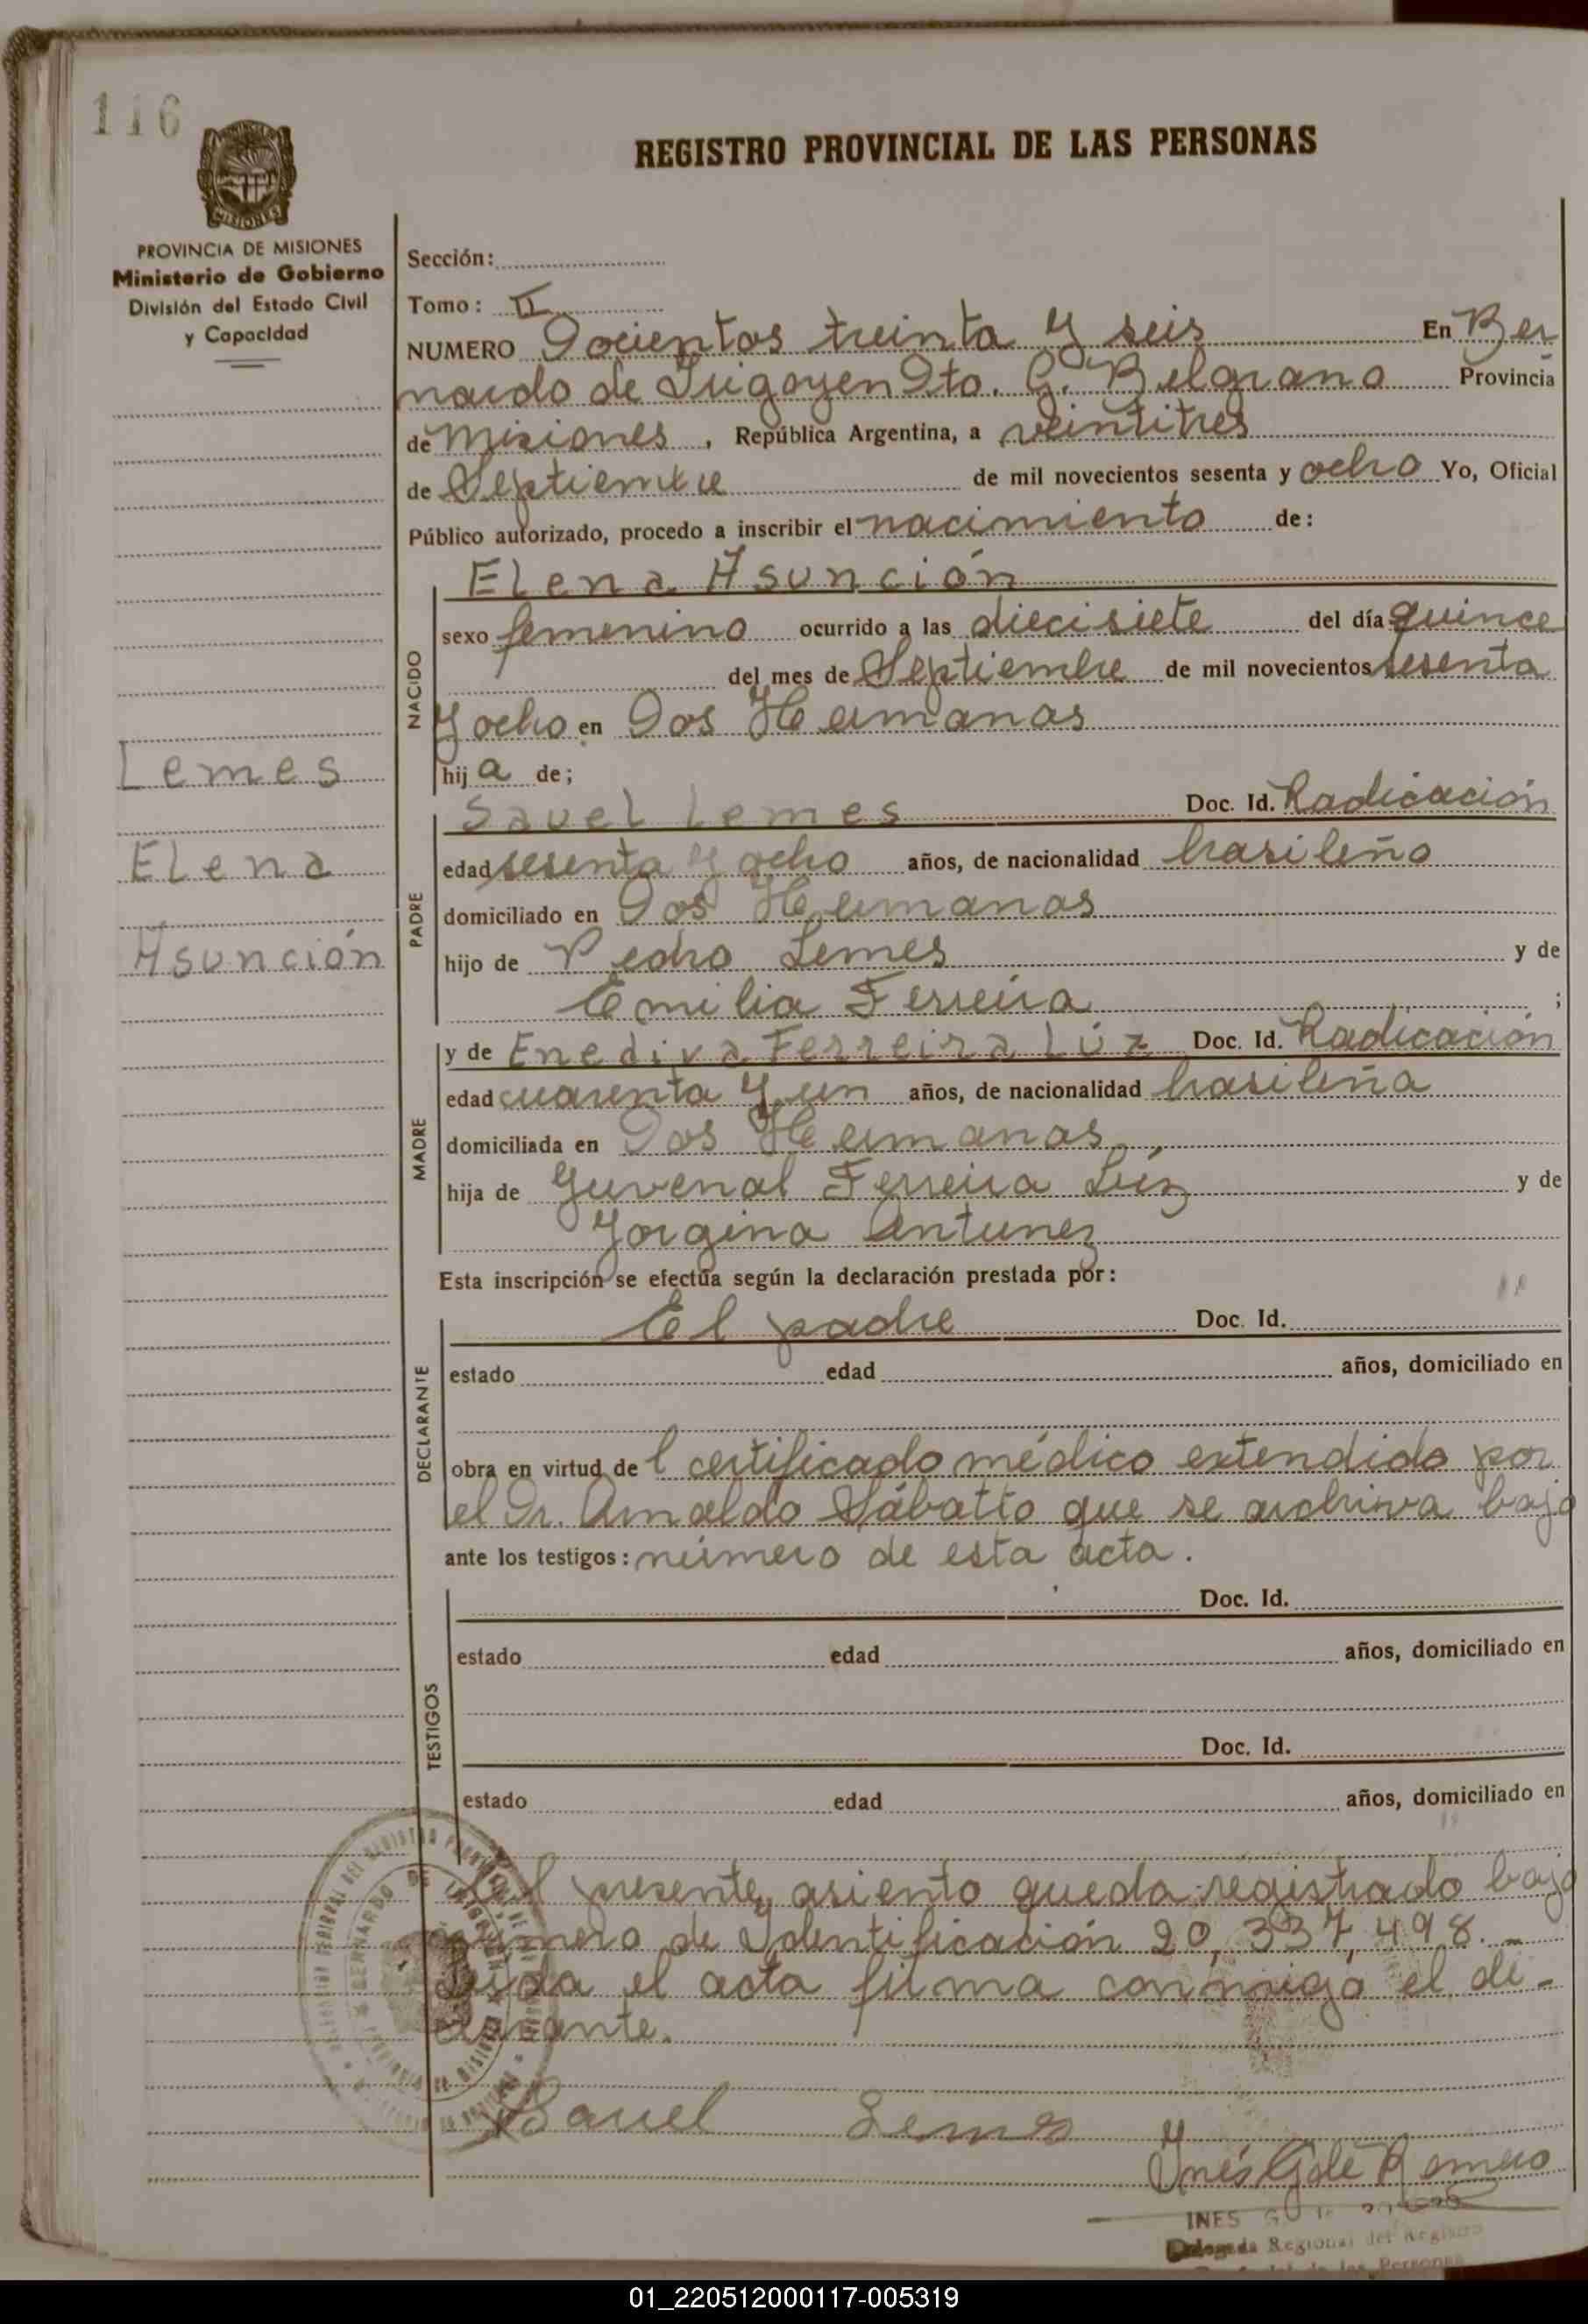 116
REGISTRO PROVINCIAL DE LAS PERSONAS
MISIONES
PROVINCIA DE MISIONES
Ministerio de Gobierno
División del Estado Civil
y Capacidad
Sección:
Tomo: II
NUMERO Docientos treinta y seis En Ber
nardo de Irigoyen Dto. G. Belgrano Provincia
de Misiones, República Argentina, a veintitres
de Septiembre de mil novecientos sesenta y ocho Yo, Oficial
Público autorizado, procedo a inscribir el nacimiento de:
Elena Asunción
NACIDO
sexo femenino ocurrido a las diecisiete del día quince
del mes de Septiembre de mil novecientos sesenta
y ocho en Dos Hermanas
hija de;
Lemes
Elena
Asunción
PADRE
Sauel Lemes Doc. Id. Radicación
edad sesenta y ocho años, de nacionalidad brasileño
domiciliado en Dos Hermanas
hijo de Pedro Lemes y de
Emilia Ferreira ;
MADRE
y de Enediva Ferreira Lúz Doc. Id. Radicación
edad cuarenta y un años, de nacionalidad brasileña
domiciliada en Dos Hermanas
hija de Yuvenal Ferreira Lúz y de
Yorgina Antunez
Esta inscripción se efectúa según la declaración prestada por:
DECLARANTE
El padre Doc. Id.
estado edad años, domiciliado en
obra en virtud del certificado médico extendido por
el Dr. Arnaldo Sábatto que se archiva bajo
ante los testigos: número de esta acta.
TESTIGOS
Doc. Id.
estado edad años, domiciliado en
Doc. Id.
estado edad años, domiciliado en
El presente asiento queda registrado bajo
número de Identificación 20,337,498.-
Leida el acta firma conmigo el de-
clarante.
Sauel Lemes
Inés Golé Romero
INES
Delegada Regional del Registro
Provincial de las Personas
01_220512000117-005319